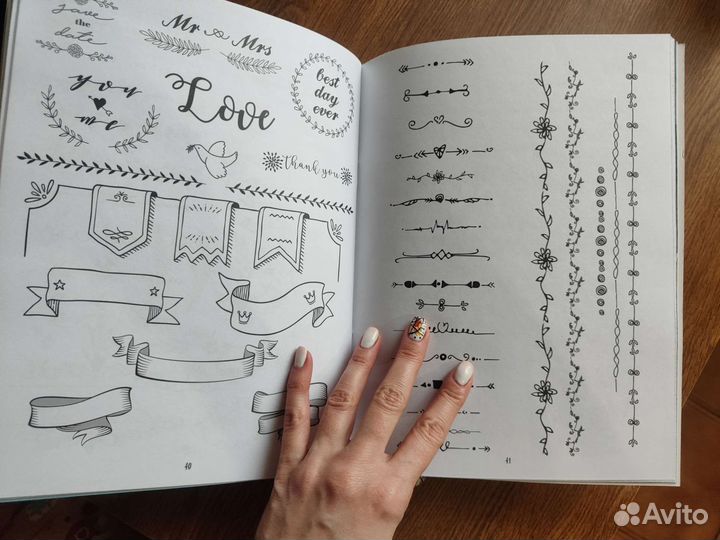 save
the
date
Mr & Mrs
best
day
ever
you
&
me
Love
thank you
40
41
Avito